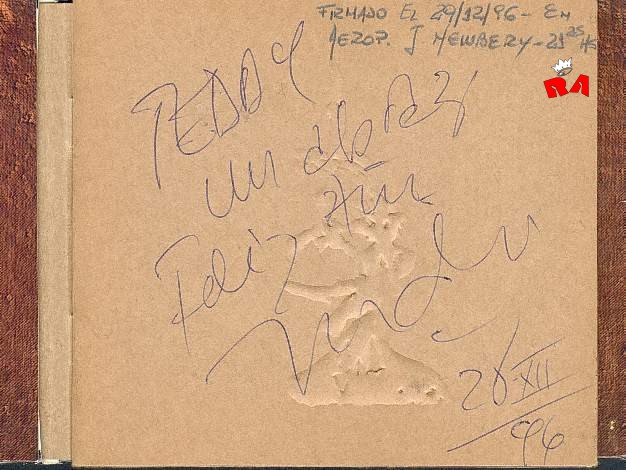 FIRMADO EL 29/12/96 - EN
AEROP. J NEWBERY - 21 25 HS
RA
TEDDY
un abrazo
Feliz Año
28 XII
96